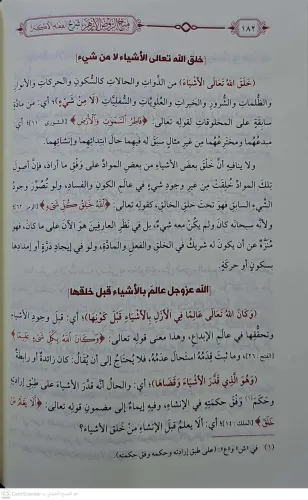 ١٨٢
منح الروض الأزهر شرح الفقه الأكبر
[خلق الله تعالى الأشياء لا من شيء]
(خَلَقَ اللهُ تَعَالَى الْأَشْيَاءَ) من الذوات والحالات كالسُّكون والحركات والأنوار
والظُّلمات والشُّرور والخيرات والعُلْويَّات والسُّفليَّات (لَا مِنْ شَيْءٍ)؛ أي: من مادَّةٍ
سابقةٍ على المخلوقات لقوله تعالى: ﴿فَاطِرُ السَّمَوَتِ وَالْأَرْضِ﴾ [الشورى: ١١]؛ أي:
مبدعُهما ومخترعُهما من غير مثالٍ سبق له فيهما حال ابتدائهما وإنشائهما.
ولا ينافيه أنَّ خَلْقَ بعض الأشياء من بعض الموادِّ على وَفْق ما أراد، فإنَّ أصول
تلك الموادِّ خُلِقتْ من غير وجودِ شيءٍ في عالم الكون والفساد، ولو تُصُوِّر وجودُ
الشَّيء السابق فهو تحت خلق الخالق، كقوله تعالى: ﴿اللَّهُ خَلِقُ كُلِّ شَيْءٍ﴾ [الزمر: ٦٢]
ولأنَّه سبحانه كانَ ولم يكنْ معه شيءٌ، بل في نَظَر العارفينَ هو الآن على ما كان، فهو
مُنزَّهٌ عن أن يكون له شريكٌ في الخلق والفعل والمادَّة، ولو في إيجادِ ذرَّةٍ أو إمدادِها
بسكونٍ أو حركةٍ.
[الله عزوجل عالمٌ بالأشياء قبل خلقها]
(وَكَانَ اللهُ تَعَالَى عَالِمًا فِي الْأَزَلِ بِالْأَشْيَاءِ قَبْلَ كَوْنِهَا)؛ أي: قبل وجود الأشياء
وتحقُّقها في عالم الإبداع، وهذا معنى قوله تعالى: ﴿وَكَانَ اللَّهُ بِكُلِّ شَيْءٍ عَلِيمًا﴾
[الفتح: ٢٦]، وما ثبتَ قِدَمُه استحالَ عدمُه، فلا يُحتاج إلى أن يُقال: كان زائدةٌ أو رابطةٌ
(وَهُوَ الَّذِي قَدَّرَ الْأَشْيَاءَ وَقَضَاهَا)؛ أي: والحالُ أنَّه قدَّر الأشياءَ على طبق إرادتِه
وحَكَمَ(١) وَفْق حكمتِه في الإنشاء، وفيه إيماءٌ إلى مضمون قوله تعالى: ﴿أَلَا يَعْلَمُ مَنْ
خَلَقَ﴾ [الملك: ١٤]؛ أي: ألَا يعلمُ قبلَ الإنشاءِ مَنْ خلقَ الأشياءَ؟
(١) في «ش» و«ع»: (على طبق إرادته وحكمه وفق حكمته).